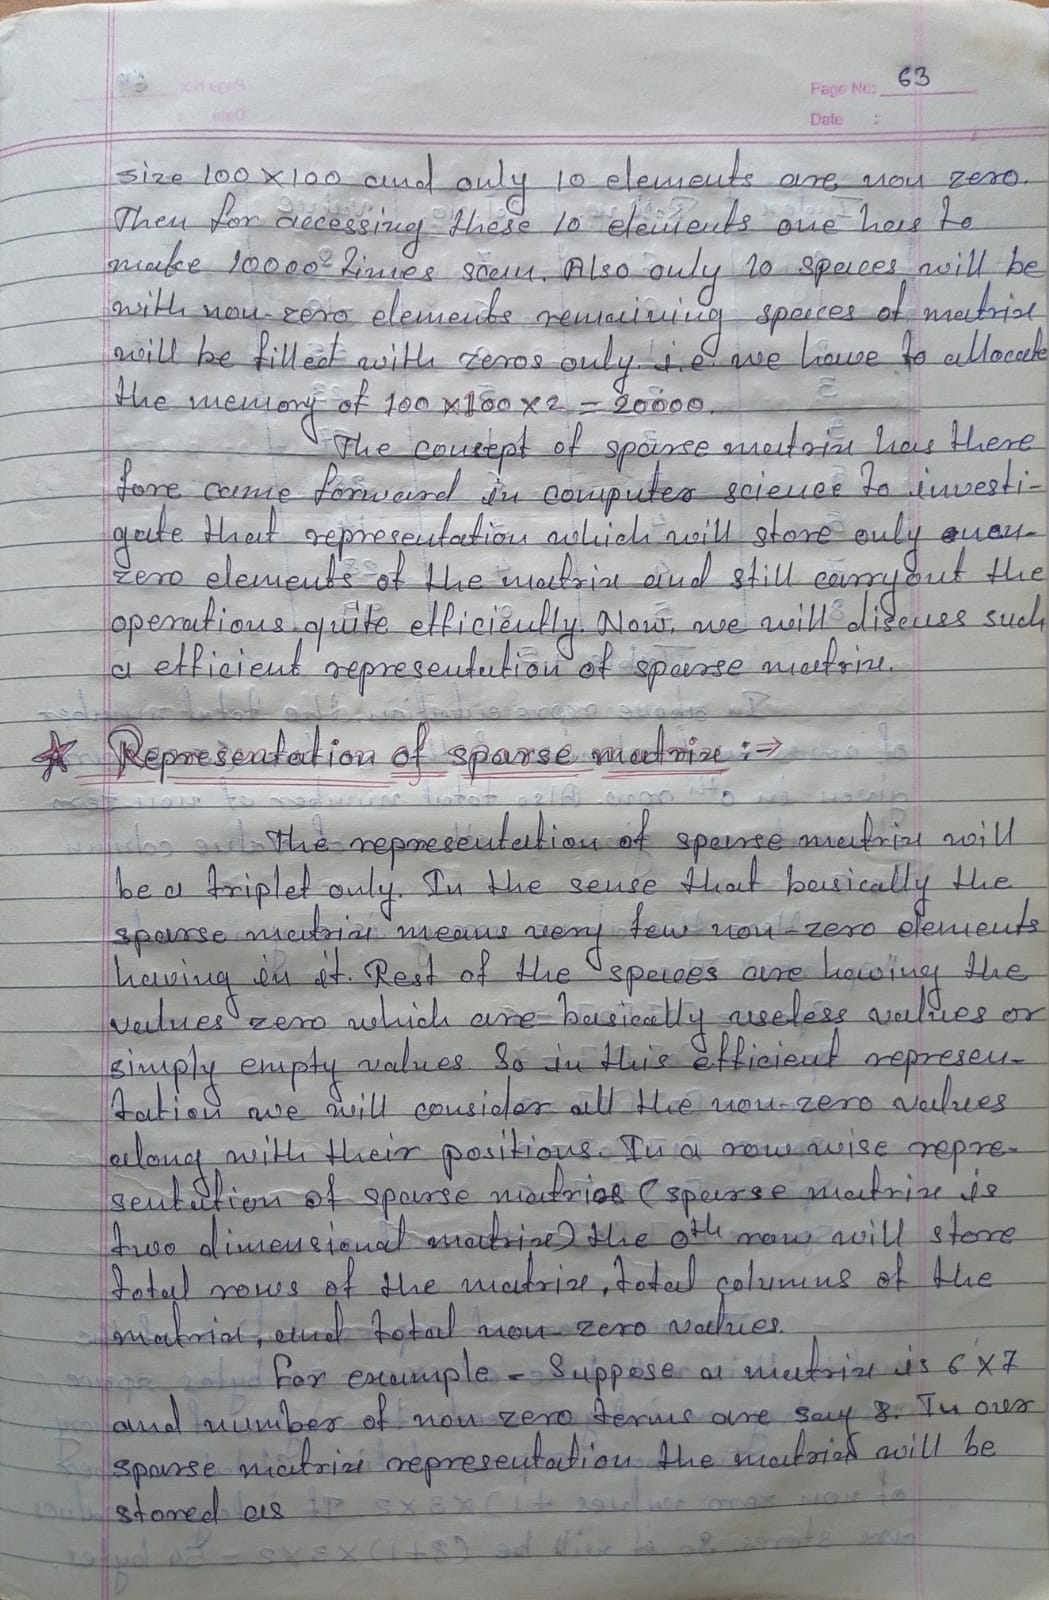 Page No: 63
Date :
size 100×100 and only 10 elements are non zero.
Then for accessing these 10 elements one has to
make 10000 times scan. Also only 10 spaces will be
with non-zero elements remaining spaces of matrix
will be filled with zeros only. i.e. we have to allocate
the memory of 100×100×2 = 20000.
The concept of sparse matrix has there
fore came forward in computer science to investi-
gate that representation which will store only non-
zero elements of the matrix and still carryout the
operations quite efficiently. Now, we will discuss such
a efficient representation of sparse matrix.
★ Representation of sparse matrix :→
The representation of sparse matrix will
be a triplet only. In the sense that basically the
sparse matrix means very few non-zero elements
having in it. Rest of the spaces are having the
values zero which are basically useless values or
simply empty values. So in this efficient represen-
tation we will consider all the non-zero values
along with their positions. In a row wise repre-
sentation of sparse matrics (sparse matrix is
two dimensional matrix) the 0th row will store
total rows of the matrix, total columns of the
matrix, and total non-zero values.
For example - Suppose a matrix is 6×7
and number of non zero terms are say 8. In our
sparse matrix representation the matrix will be
stored as